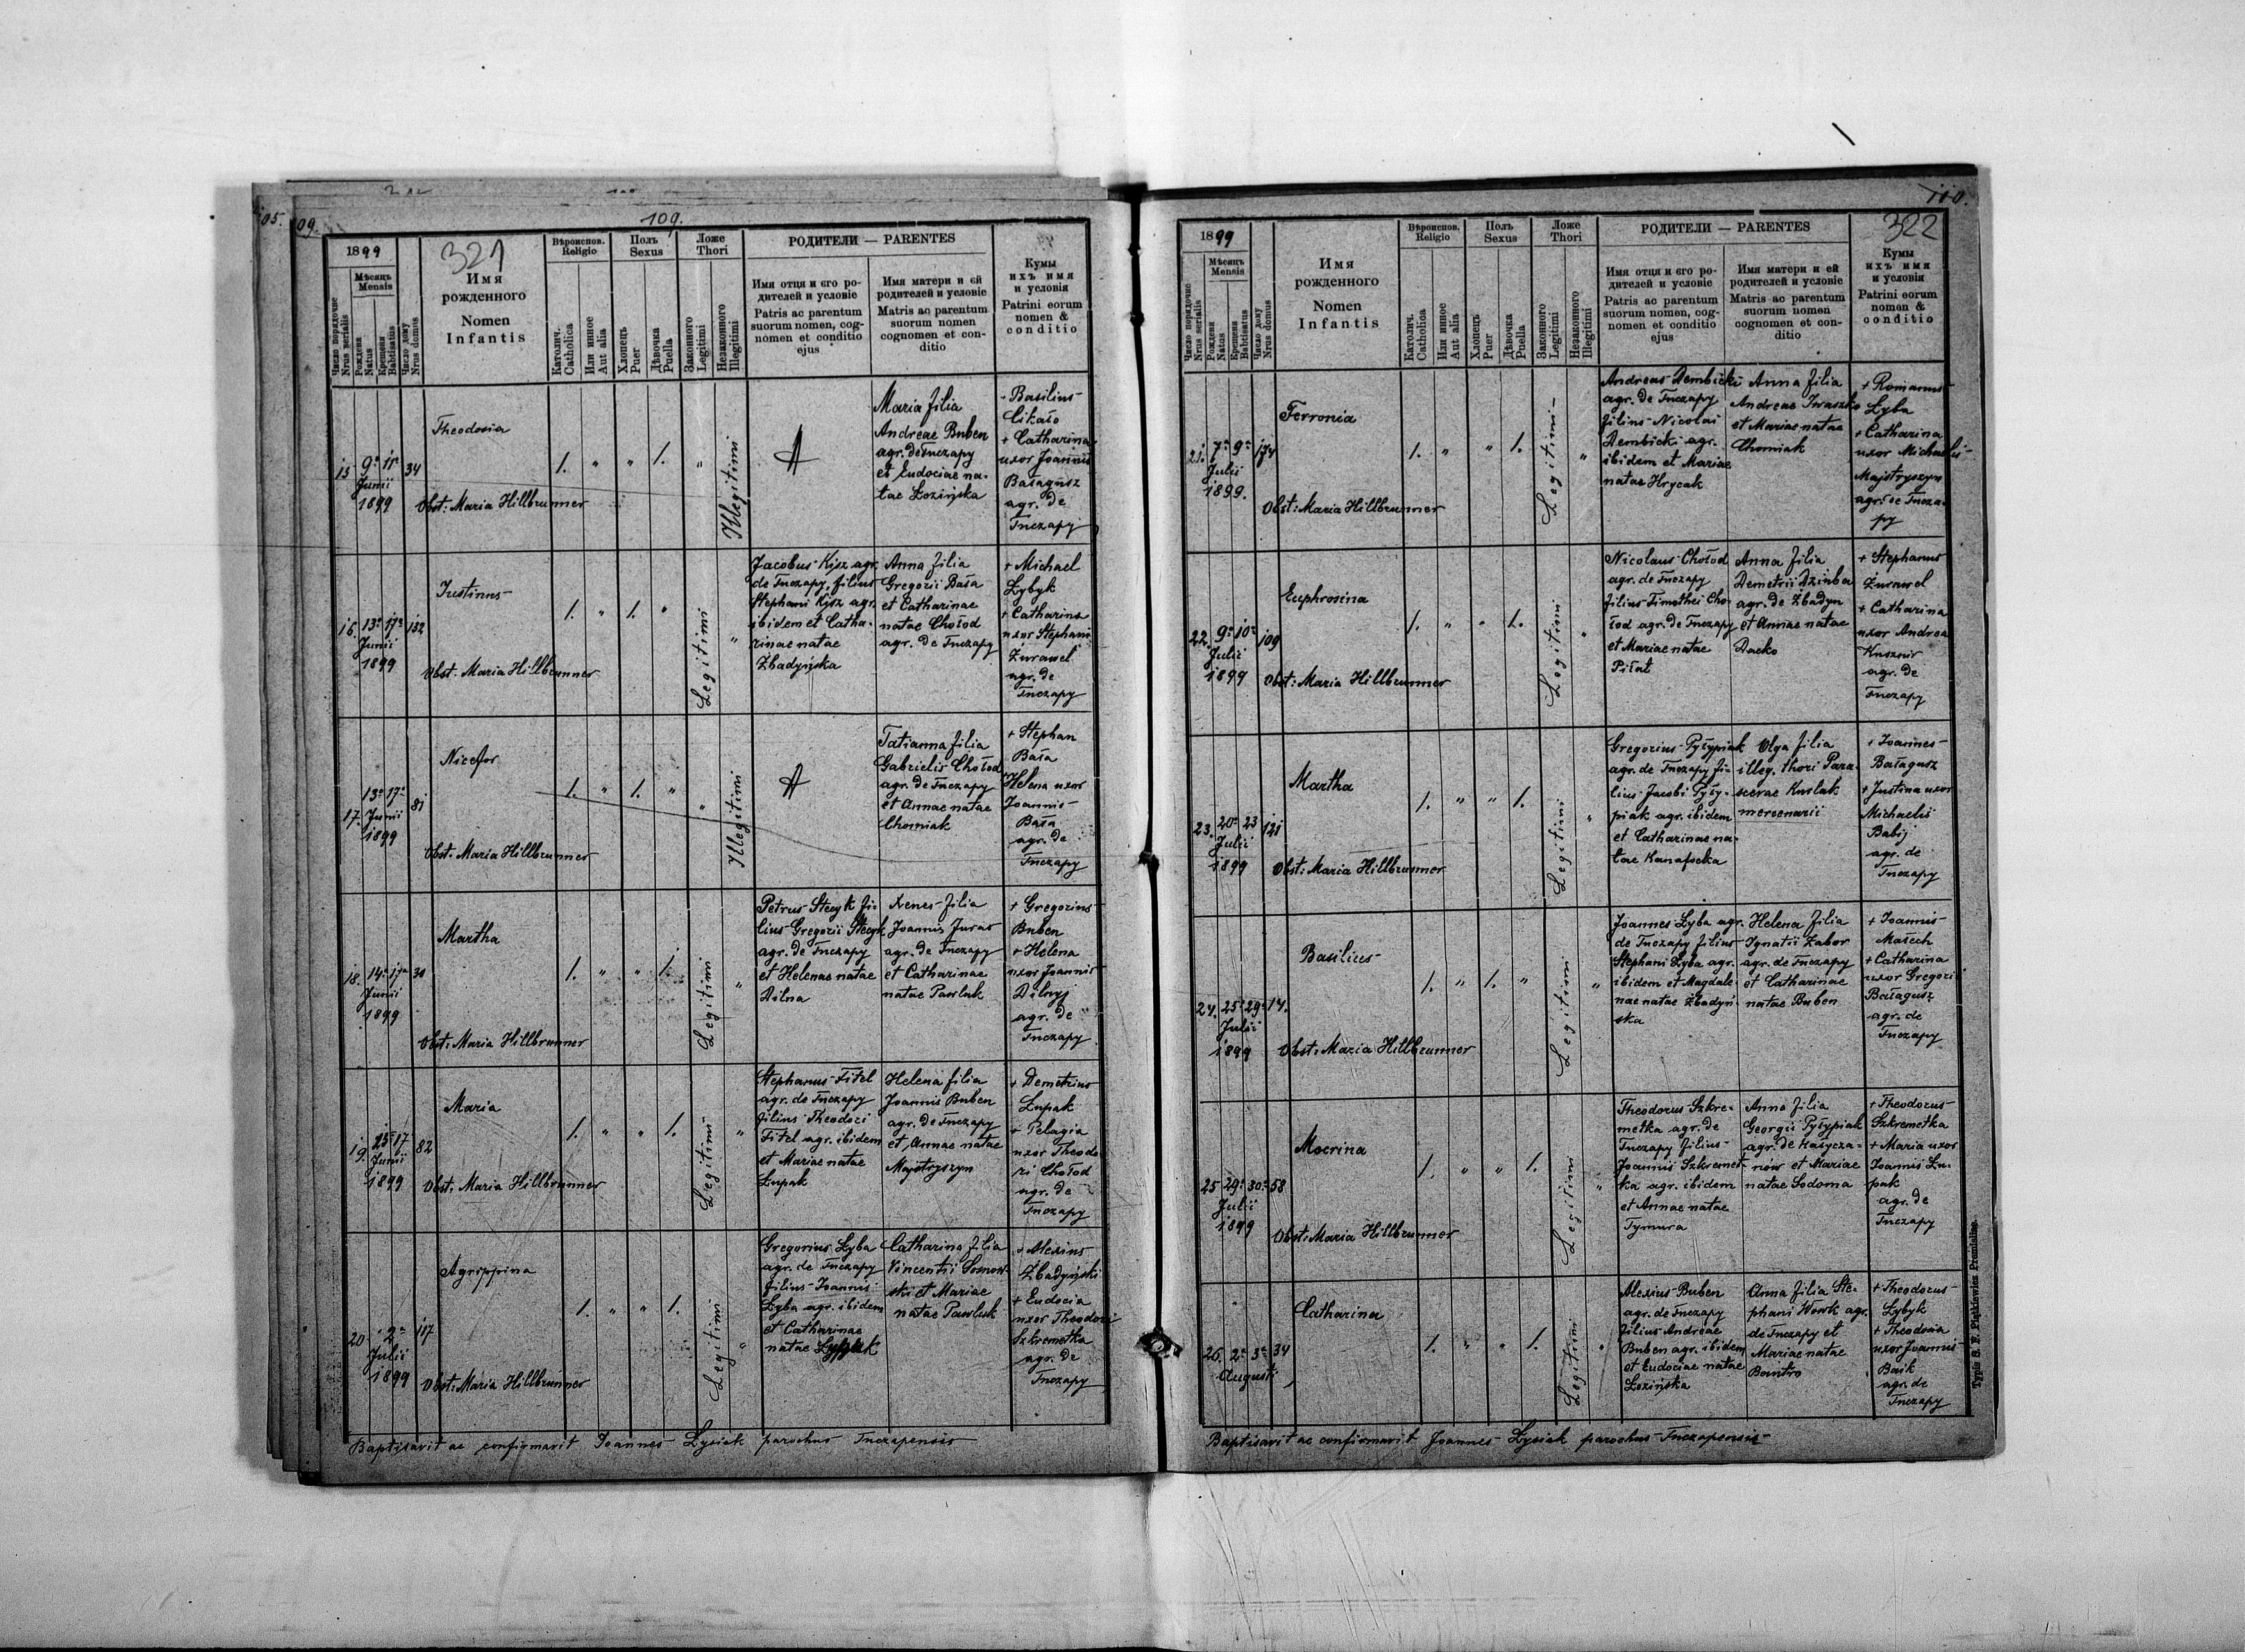 105.
109.
109.
1899
321
Вѣроиспов.
Religio
Полъ
Sexus
Ложе
Thori
РОДИТЕЛИ — PARENTES
Число порядочне
Nrus serialis
Мѣсяцъ
Mensis
Рождена
Natus
Крещена
Babtisatus
Число дому
Nrus domus
Имя
рожденного
Nomen
Infantis
Католич.
Catholica
Или инное
Aut alia
Хлопецъ
Puer
Дѣвочка
Puella
Законного
Legitimi
Незаконного
Illegitimi
Имя отця и єго ро-
дителей и условіе
Patris ac parentum
suorum nomen, cog-
nomen et conditio
ejus
Имя матери и єй
родителей и условіе
Matris ac parentum
suorum nomen
cognomen et con-
ditio
Кумы
ихъ имя
и условія
Patrini eorum
nomen &
conditio
15 9a 11a 34
Junii
1899
Theodosia
Obst: Maria Hillbrunner
1. " " 1. "
Illegitimi
Maria filia
Andreae Buben
agr. de Tuczapy
et Eudociae na-
tae Łozińska
Basilius
Cikało
+ Catharina
uxor Joannis
Bałagusz
agr. de
Tuczapy
16. 13a 17a 132
Junii
1899
Justinus
Obst. Maria Hillbrunner
1. " 1. "
Legitimi "
Jacobus Kisz agr.
de Tuczapy, filius
Stephani Kisz agr.
ibidem et Catha-
rinae natae
Zbadyńska
Anna filia
Gregorii Bała
et Catharinae
natae Chołod
agr. de Tuczapy
+ Michael
Łybyk
+ Catharina
uxor Stephani
Żurawel
agr. de
Tuczapy
17. 13a 17a 81
Junii
1899
Nicefor
Obst. Maria Hillbrunner
1. " 1. " "
Illegitimi
Tatianna filia
Gabrielis Chołod
agr. de Tuczapy
et Annae natae
Chomiak
+ Stephan
Bała
+ Helena uxor
Joannis
Bała
agr. de
Tuczapy
18. 14a 17a 30
Junii
1899
Martha
Obst: Maria Hillbrunner
1. " " 1.
Legitimi "
Petrus Stecyk fi-
lius Gregorii Stecyk
agr. de Tuczapy
et Helenae natae
Dilna
Xenes filia
Joannis Juras
agr. de Tuczapy
et Catharinae
natae Pawluk
+ Gregorius
Buben
+ Helena
uxor Joannis
Dilnyj
agr. de
Tuczapy
19. 15 17 82
Junii
1899
Maria
Obst: Maria Hillbrunner
1. " " 1.
Legitimi "
Stephanus Fitel
agr. de Tuczapy
filius Theodori
Fitel agr. ibidem
et Mariae natae
Łupak
Helena filia
Joannis Buben
agr. de Tuczapy
et Annae natae
Majstryszyn
+ Demetrius
Łupak
+ Pelagia
uxor Theodo
ri Chołod
agr. de
Tuczapy
20 2a 117
Julii
1899
Agrippina
Obst: Maria Hillbrunner
1. " " 1.
Legitimi "
Gregorius Łyba
agr. de Tuczapy
filius Joannis
Łyba agr. ibidem
et Catharinae
natae
Catharina filia
Vincentii Sosnow-
ski et Mariae
natae Pawluk
+ Alexius
Zbadyński
+ Eudocia
uxor Theodori
Szkremetka
agr. de
Tuczapy
Baptisavit ac confirmavit Joannes Łysiak parochus Tuczapensis
110.
322
1899
Вѣроиспов.
Religio
Полъ
Sexus
Ложе
Thori
РОДИТЕЛИ — PARENTES
Число порядочне
Nrus serialis
Мѣсяцъ
Mensis
Рождена
Natus
Крещена
Babtisatus
Число дому
Nrus domus
Имя
рожденного
Nomen
Infantis
Католич.
Catholica
Или инное
Aut alia
Хлопецъ
Puer
Дѣвочка
Puella
Законного
Legitimi
Незаконного
Illegitimi
Имя отця и єго ро-
дителей и условіе
Patris ac parentum
suorum nomen, cog-
nomen et conditio
ejus
Имя матери и єй
родителей и условіе
Matris ac parentum
suorum nomen
cognomen et con-
ditio
Кумы
ихъ имя
и условія
Patrini eorum
nomen &
conditio
21. 7a 9a 174
Julii
1899.
Ferronia
Obst: Maria Hillbrunner
1. " " 1.
Legitimi "
Andreas Dembicki
agr. de Tuczapy
filius Nicolai
Dembicki agr.
ibidem et Mariae
natae Hrycak
Anna filia
Andreae Iwaszko
et Mariae natae
Chomiak
+ Romanus
Łyba
+ Catharina
uxor Michaelis
Majstryszyn
agr. de Tucza-
py
22. 9a 10a 109
Julii
1899
Euphrosina
Obst: Maria Hillbrunner
1. " " 1.
Legitimi "
Nicolaus Chołod
agr. de Tuczapy
filius Timothei Cho-
łod agr. de Tuczapy
et Mariae natae
Piłat
Anna filia
Demetrii Dziuba
agr. de Zbadyn
et Annae natae
Dacko
+ Stephanus
Żurawel
+ Catharina
uxor Andrea
Kusznir
agr. de
Tuczapy
23. 20a 23 121
Julii
1899
Martha
Obst: Maria Hillbrunner
1. " " 1.
Legitimi "
Gregorius Pyłypiak
agr. de Tuczapy fi-
lius Jacobi Pyły-
piak agr. ibidem
et Catharinae na-
tae Kanafocka
Olga filia
illeg. thori Para-
scevae Kurlak
mercenarii
+ Joannes
Bałagusz
+ Justina uxor
Michaelis
Babij
agr. de
Tuczapy
24. 25a 29a 14.
Julii
1899
Basilius
Obst: Maria Hillbrunner
1. " 1. "
Legitimi "
Joannes Łyba agr.
de Tuczapy filius
Stephani Łyba agr.
ibidem et Magdale-
nae natae Zbadyń-
ska
Helena filia
Ignatii Zabor
agr. de Tuczapy
et Catharinae
natae Buben
+ Joannis
Małech
+ Catharina
uxor Gregori
Bałagusz
agr. de
Tuczapy
25 29a 30a 58
Julii
1899
Mocrina
Obst: Maria Hillbrunner
1. " " 1.
Legitimi "
Theodorus Szkre-
metka agr. de
Tuczapy filius
Joannis Szkremet-
ka agr. ibidem
et Annae natae
Tymura
Anna filia
Georgii Pyłypiak
agr. de
et Mariae
natae Sodoma
+ Theodorus
Szkremetka
+ Maria uxor
Joannis Łu-
pak
agr. de
Tuczapy
26. 2a 3a 34
Augusti
Catharina
1. " " 1.
Legitimi "
Alexius Buben
agr. de Tuczapy
filius Andreae
Buben agr. ibidem
et Eudociae natae
Łozińska
Anna filia Ste-
phani Wowk agr.
de Tuczapy et
Mariae natae
+ Theodorus
Łybyk
+ Theodosia
uxor Joannis
Baik
agr. de
Tuczapy
Baptisavit ac confirmavit Joannes Łysiak parochus Tuczapensis
Typis S. F. Piątkiewicz Premisliae.